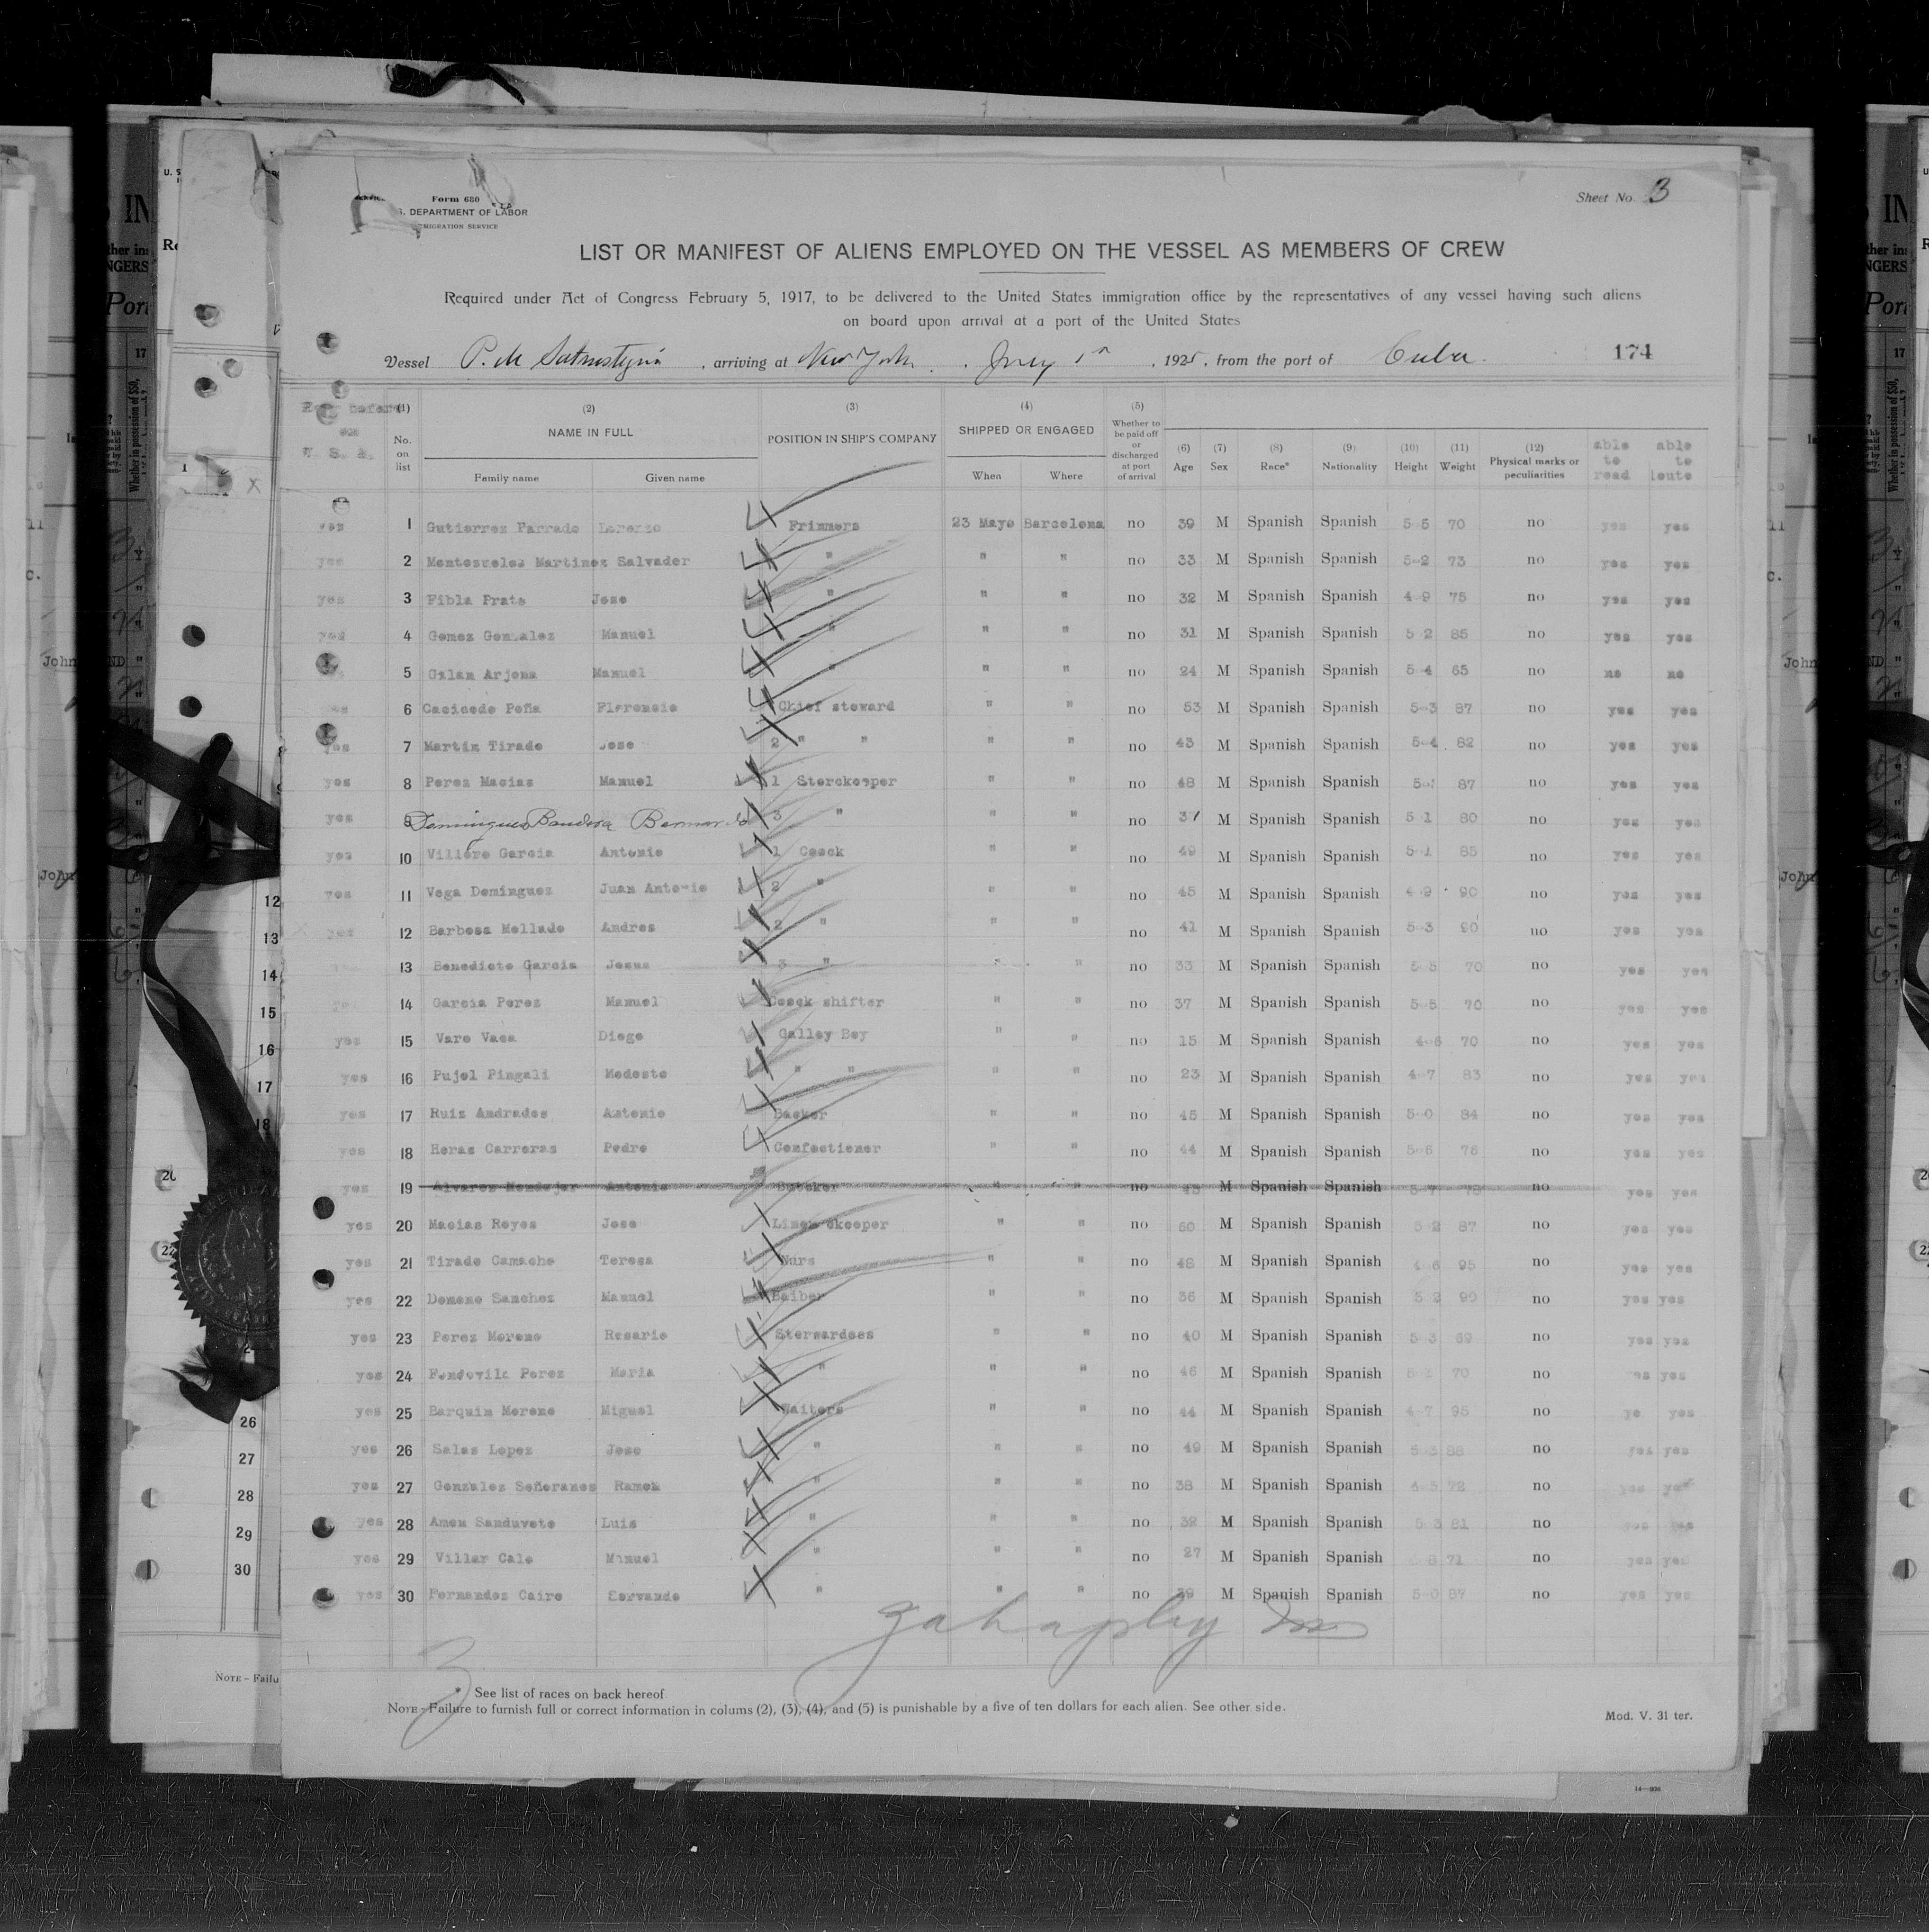 Form 680
S. DEPARTMENT OF LABOR
MIGRATION SERVICE
Sheet No. 3
LIST OR MANIFEST OF ALIENS EMPLOYED ON THE VESSEL AS MEMBERS OF CREW
Required under Act of Congress February 5, 1917, to be delivered to the United States immigration office by the representatives of any vessel having such aliens
on board upon arrival at a port of the United States
Vessel P. de Satrustegui, arriving at New York, 1925, from the port of Cuba. 174
(1) No. on list (2) NAME IN FULL Family name Given name (3) POSITION IN SHIP'S COMPANY (4) SHIPPED OR ENGAGED When Where (5) Whether to be paid off or discharged at port of arrival (6) Age (7) Sex (8) Race* (9) Nationality (10) Height (11) Weight (12) Physical marks or peculiarities able to read able te
U. S. A.
yes 1 Gutierrez Parrado Lorenzo Frimmers 23 Mayo Barcelona no 39 M Spanish Spanish 5-5 70 no yes yes
yes 2 Martinez Salvador " " " no 33 M Spanish Spanish 5-2 73 no yes yes
yes 3 Fibla Prats Jose " " " no 32 M Spanish Spanish 4-9 75 no yes yes
yes 4 Gomez Gonzalez Manuel " " " no 31 M Spanish Spanish 5-2 85 no yes yes
5 Galan Arjona Manuel " " " no 24 M Spanish Spanish 5-4 65 no no no
6 Cacicedo Peña Florencio Chief steward " " no 53 M Spanish Spanish 5-3 87 no yes yes
yes 7 Martin Tirado Jose 2 " " " " no 43 M Spanish Spanish 5-4 82 no yes yes
yes 8 Perez Macias Manuel 1 Storekeeper " " no 48 M Spanish Spanish 87 no yes yes
yes 9 Dominguez Bandera Bernardo 3 " " " no 37 M Spanish Spanish 5-1 80 no yes yes
yes 10 Garcia Antonio 1 Coock " " no 49 M Spanish Spanish 5-1 85 no yes yes
yes 11 Vega Dominguez Juan Antonio 2 " " " no 45 M Spanish Spanish 4-9 90 no yes yes
yes 12 Barbosa Mellado Andres 2 " " " no 41 M Spanish Spanish 5-3 90 no yes yes
13 Benedicto Garcia Jesus 3 " " " no 33 M Spanish Spanish 5-5 70 no yes yes
14 Garcia Perez Manuel Coock shifter " " no 37 M Spanish Spanish 5-5 70 no yes yes
yes 15 Varo Vaca Diego Galley Boy " " no 15 M Spanish Spanish 4-6 70 no yes yes
yes 16 Pujol Pingali Modesto " " " " no 23 M Spanish Spanish 4-7 83 no yes yes
yes 17 Ruiz Andrades Antonio Backer " " no 45 M Spanish Spanish 5-0 84 no yes yes
yes 18 Heras Carreras Pedro Confectioner " " no 44 M Spanish Spanish 5-6 76 no yes yes
yes 19 Alvarez Mondejar Antonio Butcker " " no 43 M Spanish Spanish 5-7 78 no yes yes
yes 20 Macias Reyes Jose " " no 60 M Spanish Spanish 5-2 87 no yes yes
yes 21 Tirado Camacho Teresa Nurs " " no 48 M Spanish Spanish 4-6 95 no yes yes
yes 22 Domene Sanchez Manuel Baiber " " no 36 M Spanish Spanish 5-2 90 no yes yes
yes 23 Perez Moreno Rosario Sterwardess " " no 40 M Spanish Spanish 5-3 69 no yes yes
yes 24 Fondovila Perez Maria " " " no 46 M Spanish Spanish 70 no yes yes
yes 25 Barquin Moreno Miguel Waiters " " no 44 M Spanish Spanish 4-7 95 no yes
yes 26 Salas Lopez Jose " " " no 49 M Spanish Spanish 5-3 88 no yes yes
yes 27 Gonzalez Señoranes Ramon " " " no 38 M Spanish Spanish 4-5 72 no yes yes
yes 28 Amen Sanduvete Luis " " " no 32 M Spanish Spanish 5-3 81 no yes yes
yes 29 Villar Calo Manuel " " " no 27 M Spanish Spanish 71 no yes yes
yes 30 Fernandez Cairo Servando " " " no 39 M Spanish Spanish 5-0 87 no yes yes
See list of races on back hereof
NOTE - Failure to furnish full or correct information in colums (2), (3), (4), and (5) is punishable by a five of ten dollars for each alien. See other side.
Mod. V. 31 ter.